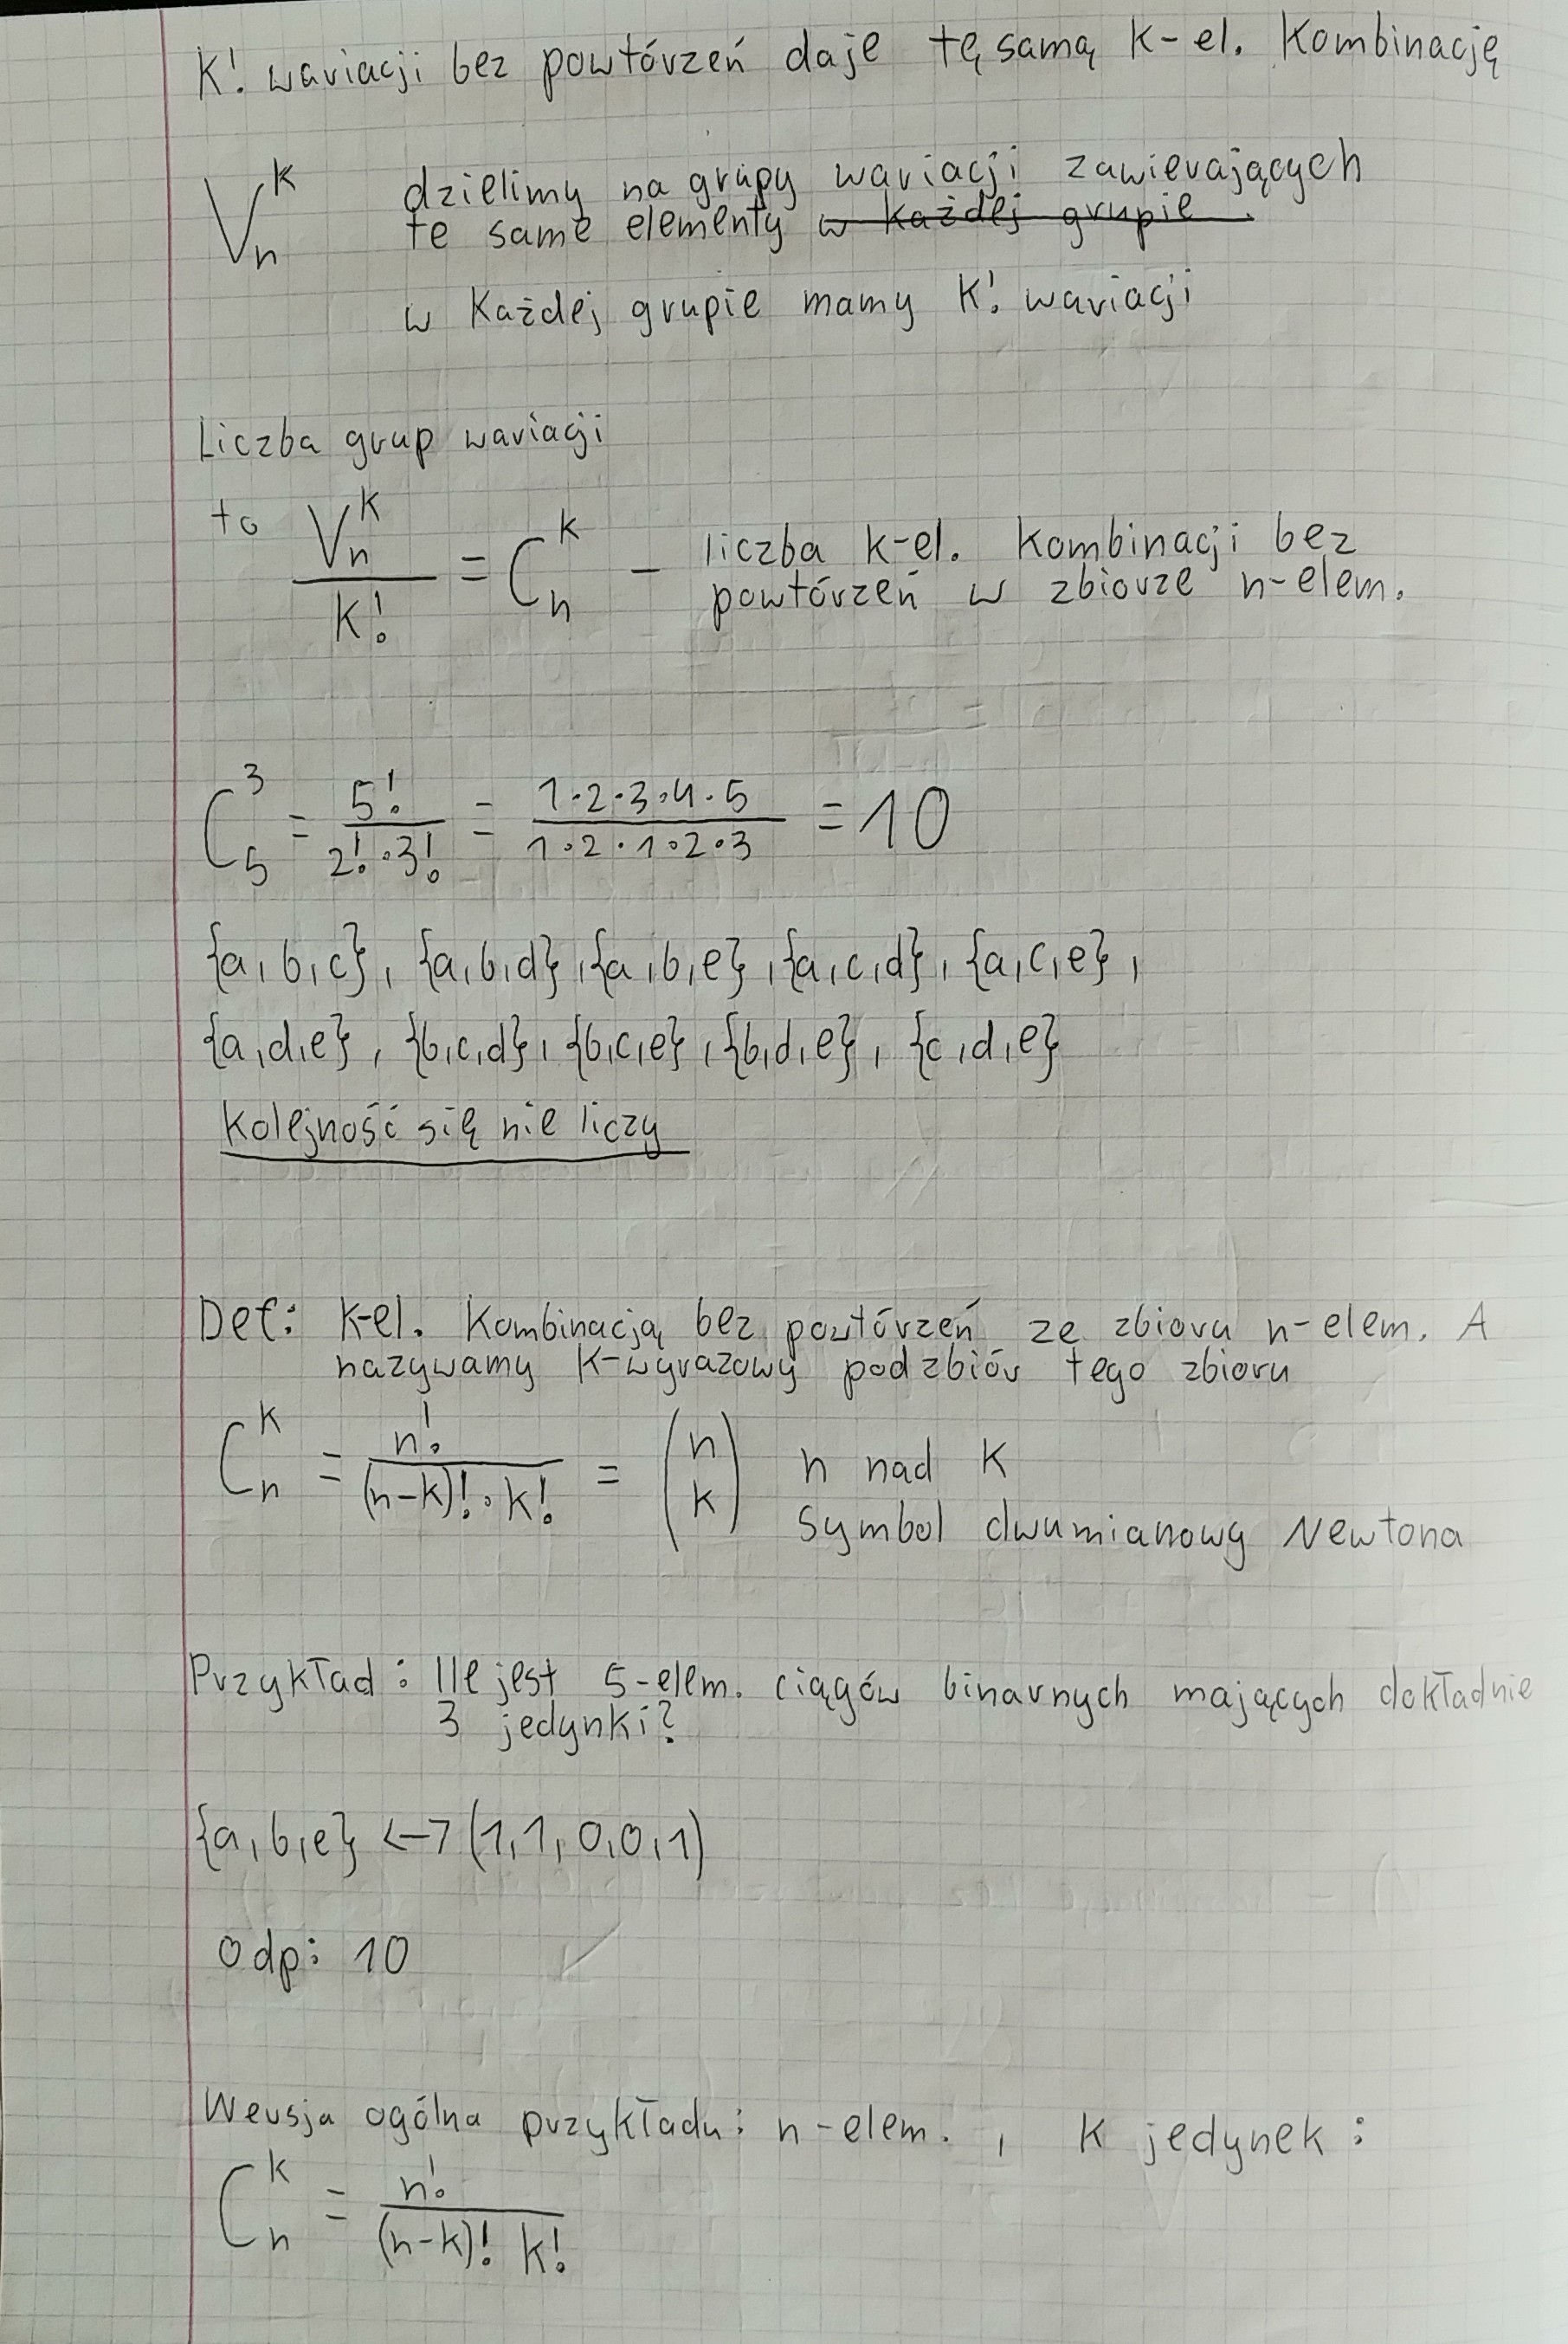 K! wariacji bez powtórzeń daje tę samą k-el. kombinację
V_n^k dzielimy na grupy wariacji zawierających
te same elementy ~~w każdej grupie~~
w każdej grupie mamy k! wariacji
Liczba grup wariacji
to V_n^k / k! = C_n^k – liczba k-el. kombinacji bez
powtórzeń w zbiorze n-elem.
C_5^3 = 5! / (2!·3!) = (1·2·3·4·5) / (1·2·1·2·3) = 10
{a,b,c}, {a,b,d}, {a,b,e}, {a,c,d}, {a,c,e},
{a,d,e}, {b,c,d}, {b,c,e}, {b,d,e}, {c,d,e}
Kolejność się nie liczy
Def: k-el. Kombinacją bez powtórzeń ze zbioru n-elem. A
nazywamy k-wyrazowy podzbiór tego zbioru
C_n^k = n! / ((n-k)!·k!) = (n k) n nad k
Symbol dwumianowy Newtona
Przykład: Ile jest 5-elem. ciągów binarnych mających dokładnie
3 jedynki?
{a,b,e} <-> (1,1,0,0,1)
Odp: 10
Wersja ogólna przykładu: n-elem., k jedynek:
C_n^k = n! / ((n-k)! k!)